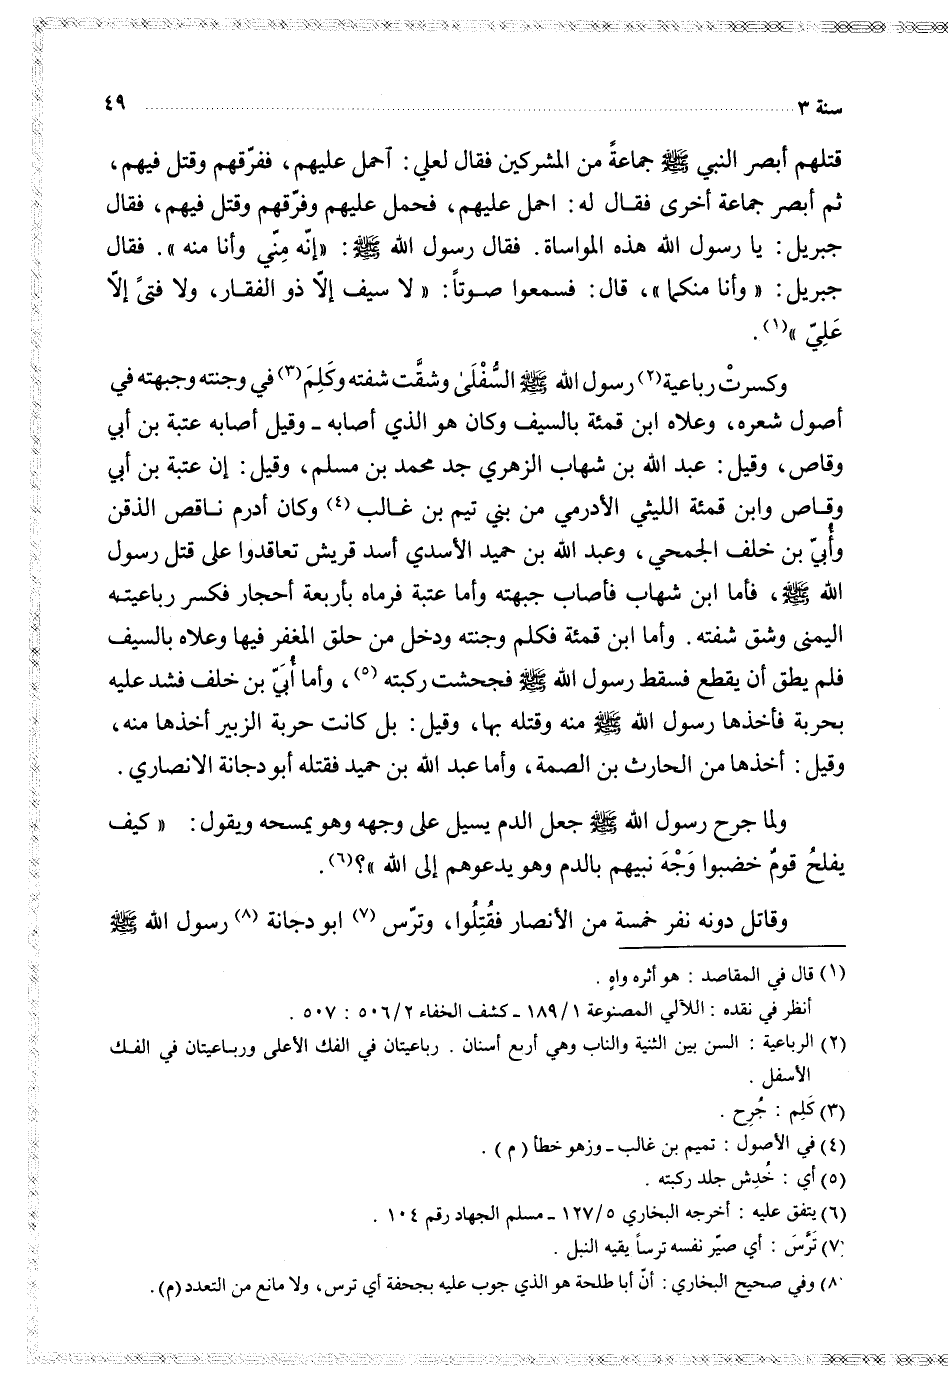 سنة ٣ ٤٩
قتلهم أبصر النبي ﷺ جماعةً من المشركين فقال لعلي: آحمل عليهم، ففرّقهم وقتل فيهم،
ثم أبصر جماعة أخرى فقال له: احمل عليهم، فحمل عليهم وفرّقهم وقتل فيهم، فقال
جبريل: يا رسول الله هذه المواساة. فقال رسول الله ﷺ: «إنّه مِنّي وأنا منه». فقال
جبريل: « وأنا منكما»، قال: فسمعوا صوتاً: « لا سيف إلاّ ذو الفقار، ولا فتىً إلاّ
عَلِيّ »(١).
وكسرتْ رباعية(٢) رسول الله ﷺ السُّفْلَىٰ وشقَّت شفته وكَلِمَ(٣) في وجنته وجبهته في
أصول شعره، وعلاه ابن قمئة بالسيف وكان هو الذي أصابه ـ وقيل أصابه عتبة بن أبي
وقاص، وقيل: عبد الله بن شهاب الزهري جد محمد بن مسلم، وقيل: إن عتبة بن أبي
وقاص وابن قمئة الليثي الأدرمي من بني تيم بن غالب (٤) وكان أدرم ناقص الذقن
وأُبيّ بن خلف الجمحي، وعبد الله بن حميد الأسدي أسد قريش تعاقدوا على قتل رسول
الله ﷺ، فأما ابن شهاب فأصاب جبهته وأما عتبة فرماه بأربعة أحجار فكسر رباعيته
اليمنى وشق شفته. وأما ابن قمئة فكلم وجنته ودخل من حلق المغفر فيها وعلاه بالسيف
فلم يطق أن يقطع فسقط رسول الله ﷺ فجحشت ركبته (٥)، وأما أُبَيّ بن خلف فشد عليه
بحربة فأخذها رسول الله ﷺ منه وقتله بها، وقيل: بل كانت حربة الزبير أخذها منه،
وقيل: أخذها من الحارث بن الصمة، وأما عبد الله بن حميد فقتله أبو دجانة الانصاري.
ولما جرح رسول الله ﷺ جعل الدم يسيل على وجهه وهو يمسحه ويقول: « كيف
يفلحُ قومٌ خضبوا وَجْهَ نبيهم بالدم وهو يدعوهم إلى الله »؟(٦).
وقاتل دونه نفر خمسة من الأنصار فقُتِلُوا، وترّس (٧) ابو دجانة (٨) رسول الله ﷺ
(١) قال في المقاصد : هو أثره واهٍ .
أنظر في نقده : اللآلي المصنوعة ١/ ١٨٩ ـ كشف الخفاء ٢/ ٥٠٦ : ٥٠٧ .
(٢) الرباعية : السن بين الثنية والناب وهي أربع أسنان . رباعيتان في الفك الأعلى ورباعيتان في الفك
الأسفل .
(٣) كَلِم : جُرِح .
(٤) في الأصول : تميم بن غالب ـ وزهو خطأ ( م ) .
(٥) أي : خُدِش جلد ركبته .
(٦) يتفق عليه : أخرجه البخاري ٥/ ١٢٧ ـ مسلم الجهاد رقم ١٠٤ .
(٧) تَرَّسَ : أي صيّر نفسه ترساً يقيه النبل .
(٨) وفي صحيح البخاري : أنّ أبا طلحة هو الذي جوب عليه بجحفة أي ترس، ولا مانع من التعدد (م) .